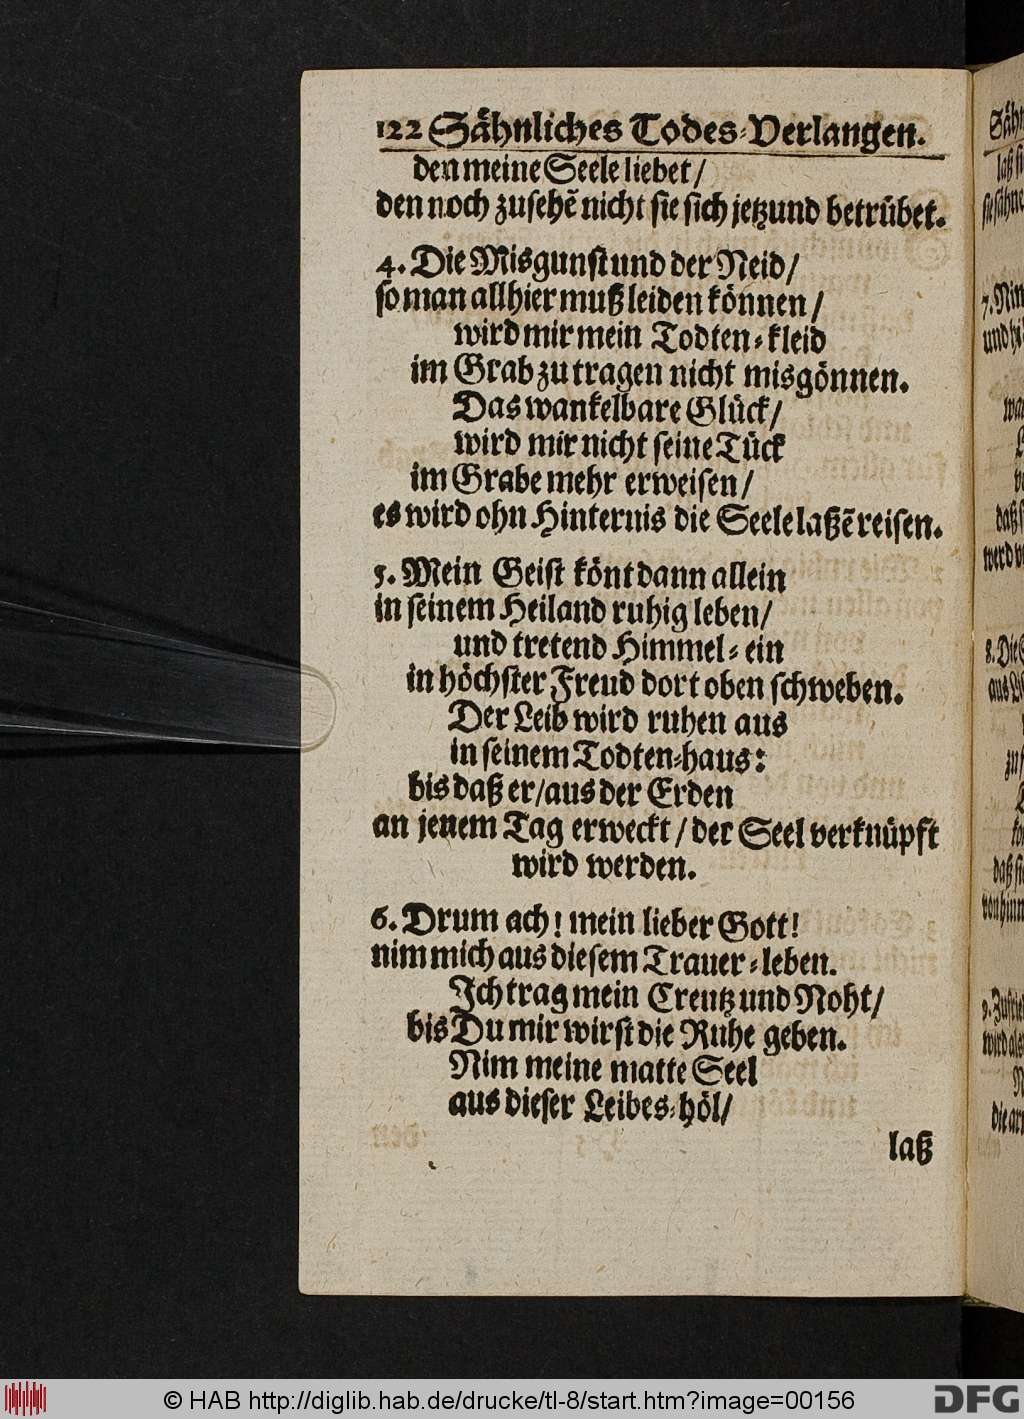 122 Såhnliches Todes-Verlangen.
den meine Seele liebet/
den noch zusehẽ nicht sie sich jetzund betrübet.
4. Die Misgunst und der Neid/
so man allhier muß leiden können/
wird mir mein Todten-kleid
im Grab zu tragen nicht misgönnen.
Das wankelbare Glück/
wird mir nicht seine Tück
im Grabe mehr erweisen/
es wird ohn Hinternis die Seele laßẽ reisen.
5. Mein Geist könt dann allein
in seinem Heiland ruhig leben/
und tretend Himmel-ein
in höchster Freud dort oben schweben.
Der Leib wird ruhen aus
in seinem Todten-haus:
bis daß er/aus der Erden
an jenem Tag erweckt/der Seel verknüpft
wird werden.
6. Drum ach! mein lieber Gott!
nim mich aus diesem Trauer-leben.
Ich trag mein Creutz und Noht/
bis Du mir wirst die Ruhe geben.
Nim meine matte Seel
aus dieser Leibes-höl/
laß
© HAB http://diglib.hab.de/drucke/tl-8/start.htm?image=00156
DFG